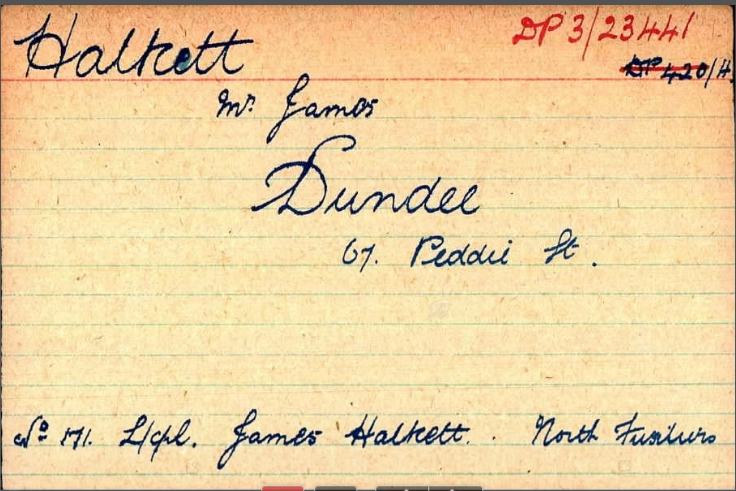 Halkett
DP 3/23441
DP 420/H.
Mr. James
Dundee
67. Peddie St.
No 171. L/cpl. James Halkett. North Fusiliers